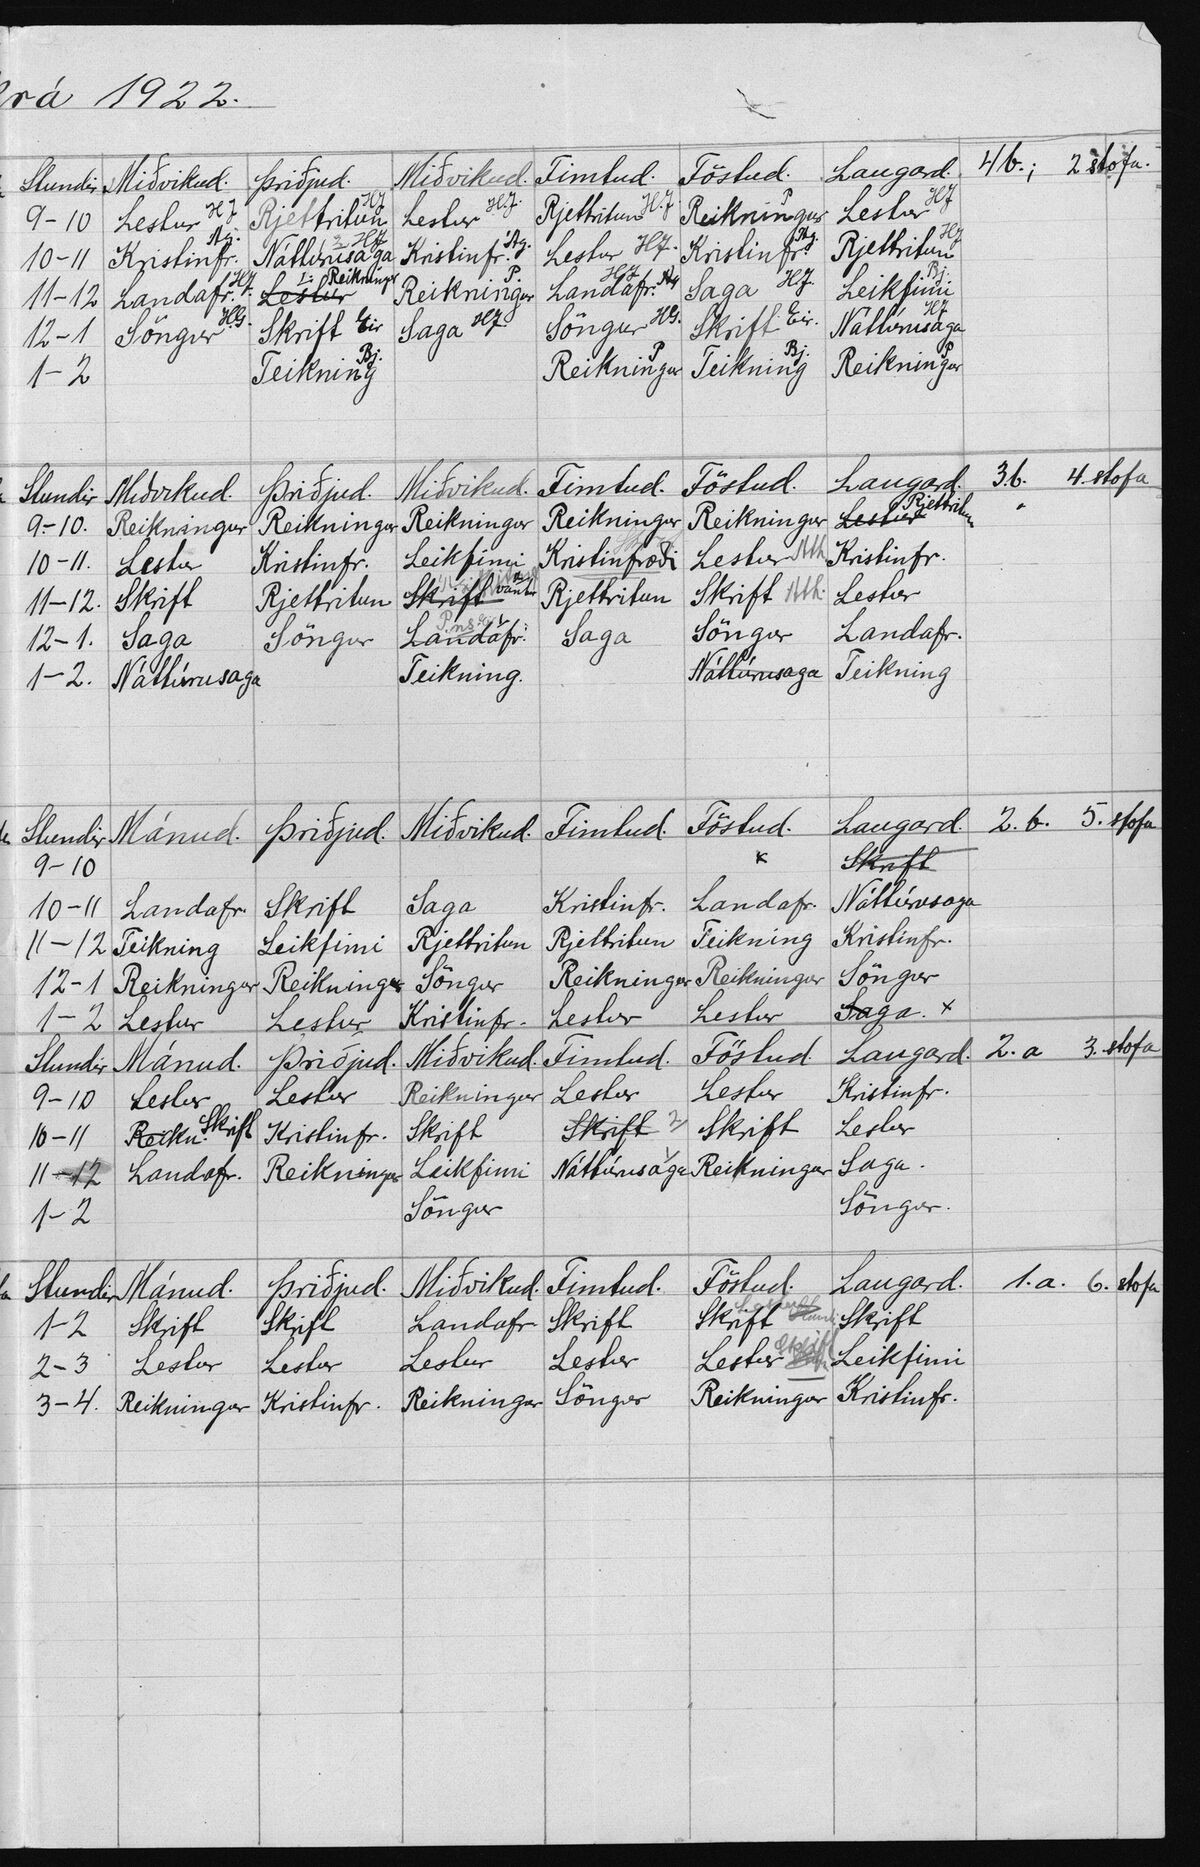 rá 1922.
Stundir Miðvikud. Þriðjud. Miðvikud. Fimtud. Föstud. Laugard. 4 b.; 2 stofa.
9-10 Lestur HJ Rjettritun HJ Lestur HJ. Rjettritun H.J Reikningur P Lestur HJ
10-11 Kristinfr. Ag. Náttúrusaga HJ Kristinfr. Ag. Lestur HJ. Kristinfr. Ag. Rjettritun HJ
11-12 Landafr. HJ. Lestur Reikningur Reikningur P. Landafr. HJ Saga HJ. Leikfimi Bj.
12-1 Söngur H.G. Skrift Eir Saga HJ. Söngur HG. Skrift Eir. Náttúrusaga HJ
1-2 Teikning Bj. Reikningur P Teikning Bj. Reikningur P
Stundir Miðvikud. Þriðjud. Miðvikud. Fimtud. Föstud. Laugard. 3 b. 4. stofa
9-10. Reikningur Reikningur Reikningur Reikningur Reikningur Lestur Rjettritun
10-11. Lestur Kristinfr. Leikfimi Kristinfrœði Lestur Ath Kristinfr.
11-12. Skrift Rjettritun Skrift vantar Rjettritun Skrift Ath. Lestur
12-1. Saga Söngur Landafr. Saga Söngur Landafr.
1-2. Náttúrusaga Teikning. Náttúrusaga Teikning
Stundir Mánud. Þriðjud. Miðvikud. Fimtud. Föstud. Laugard. 2. b. 5. stofa
9-10 x Skrift
10-11 Landafr. Skrift Saga Kristinfr. Landafr. Náttúrusaga
11-12 Teikning Leikfimi Rjettritun Rjettritun Teikning Kristinfr.
12-1 Reikningur Reikningur Söngur Reikningur Reikningur Söngur
1-2 Lestur Lestur Kristinfr. Lestur Lestur Saga. x
Stundir Mánud. Þriðjud. Miðvikud. Fimtud. Föstud. Laugard. 2. a 3. stofa
9-10 Lestur Lestur Reikningur Lestur Lestur Kristinfr.
10-11 Reikn. Skrift Kristinfr. Skrift Skrift Skrift Lestur
11-12 Landafr. Reikningur Leikfimi Náttúrusaga Reikningur Saga.
1-2 Söngur Söngur.
Stundir Mánud. Þriðjud. Miðvikud. Fimtud. Föstud. Laugard. 1. a. 6. stofa
1-2 Skrift Skrift Landafr Skrift Skrift Skrift
2-3 Lestur Lestur Lestur Lestur Lestur Skrift Leikfimi
3-4. Reikningur Kristinfr. Reikningur Söngur Reikningur Kristinfr.